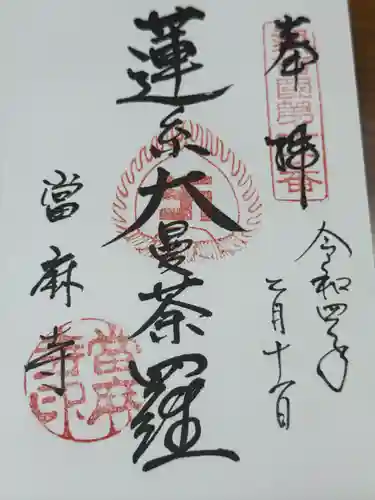 奉拝
令和四年
二月十一日
蓮糸大曼荼羅
當麻寺
當麻寺印